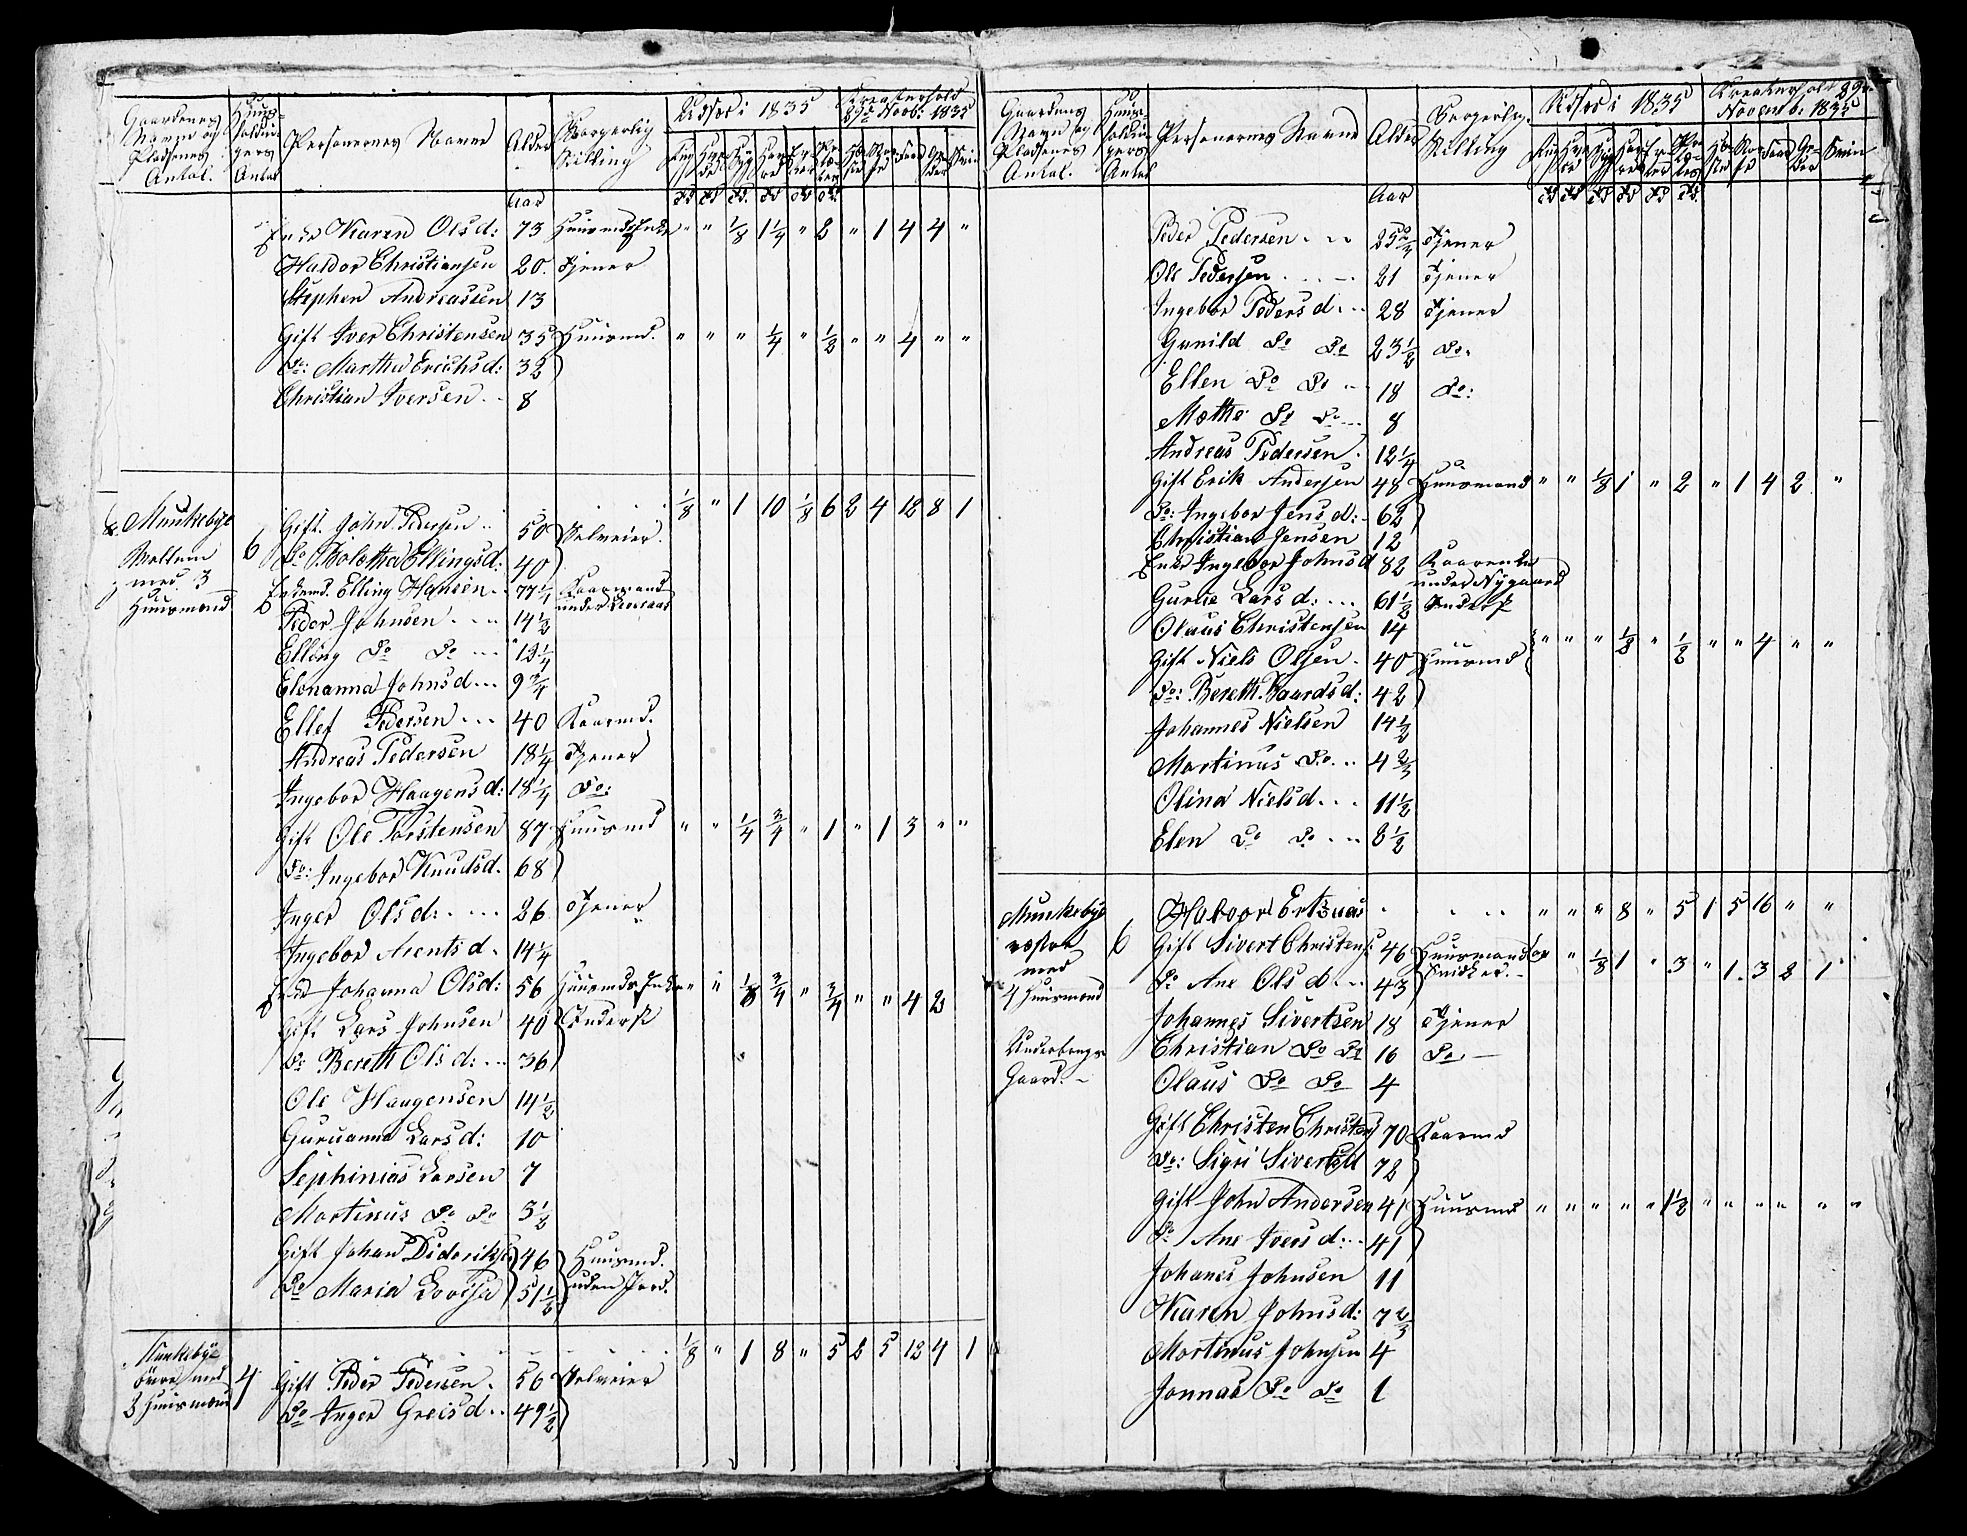 Gaardenes Navn og Pladsenes Antal. Huus- holdnin- gers Antal Personernes Navne Alder Borgerlig Stilling Udsæd i 1835 Kreaturhold 29de Novb: 1835
Aar
Enke Karen Olsd: 73 Huusmds Enke " " 1/8 1 1/4 " 2 " 1 4 4 "
Haldor Christiansen 20. Tjener
Stephen Andreassen 13
Gift Iver Christensen 35 Huusmd. " " " 1/4 " 1/2 " " 4 " "
Do: Martha Erichsd: 32
Christian Iversen 8
Munkebye Mellem med 3 Huusmænd 6
1/8 " 1 10 1/8 6 2 4 12 8 1
Gift John Pedersen 50 Selveier.
Do Boletta Ellingsd: 40
Enkemd. Elling Hansen 77 1/4 Kaarmand under
Peder Johnsen 14 1/2
Elling Do Do 12 1/4
Elenanna Johnsd 9 3/4
Ellef Pedersen 40 Kaarmd.
Andreas Pedersen 18 1/4 Tjener
Ingebor Haagensd: 18 1/4 Do:
Gift Ole Torstensen 87 Huusmd " " 1/4 3/4 " 1 " 1 3 " "
Do: Ingebor Knudsd. 68
Inger Olsd: 26 Tjener
Ingebor Arentsd 14 1/4
Enke Johanna Olsd: 56 Huusmds Enke " " 1/8 3/4 " 3/4 " " 4 2
Gift Lars Johnsen 40 Inderst
Do Bereth Olsd: 36
Ole Haagensen 14 1/2
Guruanna Larsd: 10
Sephinias Larsen 7
Martinus Do Do 3 1/2
Gift Johan Dideriks 46 Huusmd.
Do Maria Lovisa 51 1/2 uden Jord.
Munkebye øvre med 2 Huusmænd 4
1/8 " 1 8 " 5 2 5 12 4 1
Gift Peder Pedersen 56 Selveier
Do Inger Greisd 49 1/2
Gaardenes Navn og Pladsenes Antal. Huus- holdnin- gers Antal Personernes Navne Alder Borgerlig Stilling Udsæd i 1835 Kreaturhold 29de Novemb: 1835
Aar
Peder Pedersen 25 Tjener
Ole Pedersen 21 Tjener
Ingebor Pedersd 28 Tjener
Gunild Do Do 23 1/2 Do:
Ellen Do Do 18 Do:
Mathe Do Do 8
Andreas Pedersen 12 1/4
Gift Erik Andersen 48 Huusmand " " 1/8 1 " 2 " 1 4 2 "
Do: Ingebor Jensd: 62
Christian Jensen 12
Enke Ingebor Johnsd 82 Kaarenke under Nygaard
Gurue Larsd: 61 1/2 Inderst
Olaus Christensen 14
Gift Niels Olsen 40 Huusmd " " " 1/8 " 1/2 " " 4 " "
Do: Bereth Baardsd: 42
Johannes Nielsen 14 1/2
Martinus Do 4 2/3
Olina Nielsd 11 1/2
Elen Do Do 8 1/2
Munkebye vestre med 4 Huusmænd Underbrugs Gaard. 6
Haboor " " " 8 " 5 1 5 16 " "
Gift Sivert Christens 46 Huusmand og Snidker. " 1/8 1 " 3 " 1 3 2 1
Do Ane Olsd 43
Johannes Sivertsen 18 Tjener
Christian Do Do 16 Do
Olaus Do Do 4
Gift Christen Christens 70 Kaarmd
Do: Sigri Sivertsd 72
Gift John Andersen 41 Huusmd " " " " " 1/2 " " " " "
Do Ane Iversd: 41
Johanes Johnsen 11
Karen Johnsd: 7 2/3
Martinus Johnsen 4
Jonnas Do Do 1